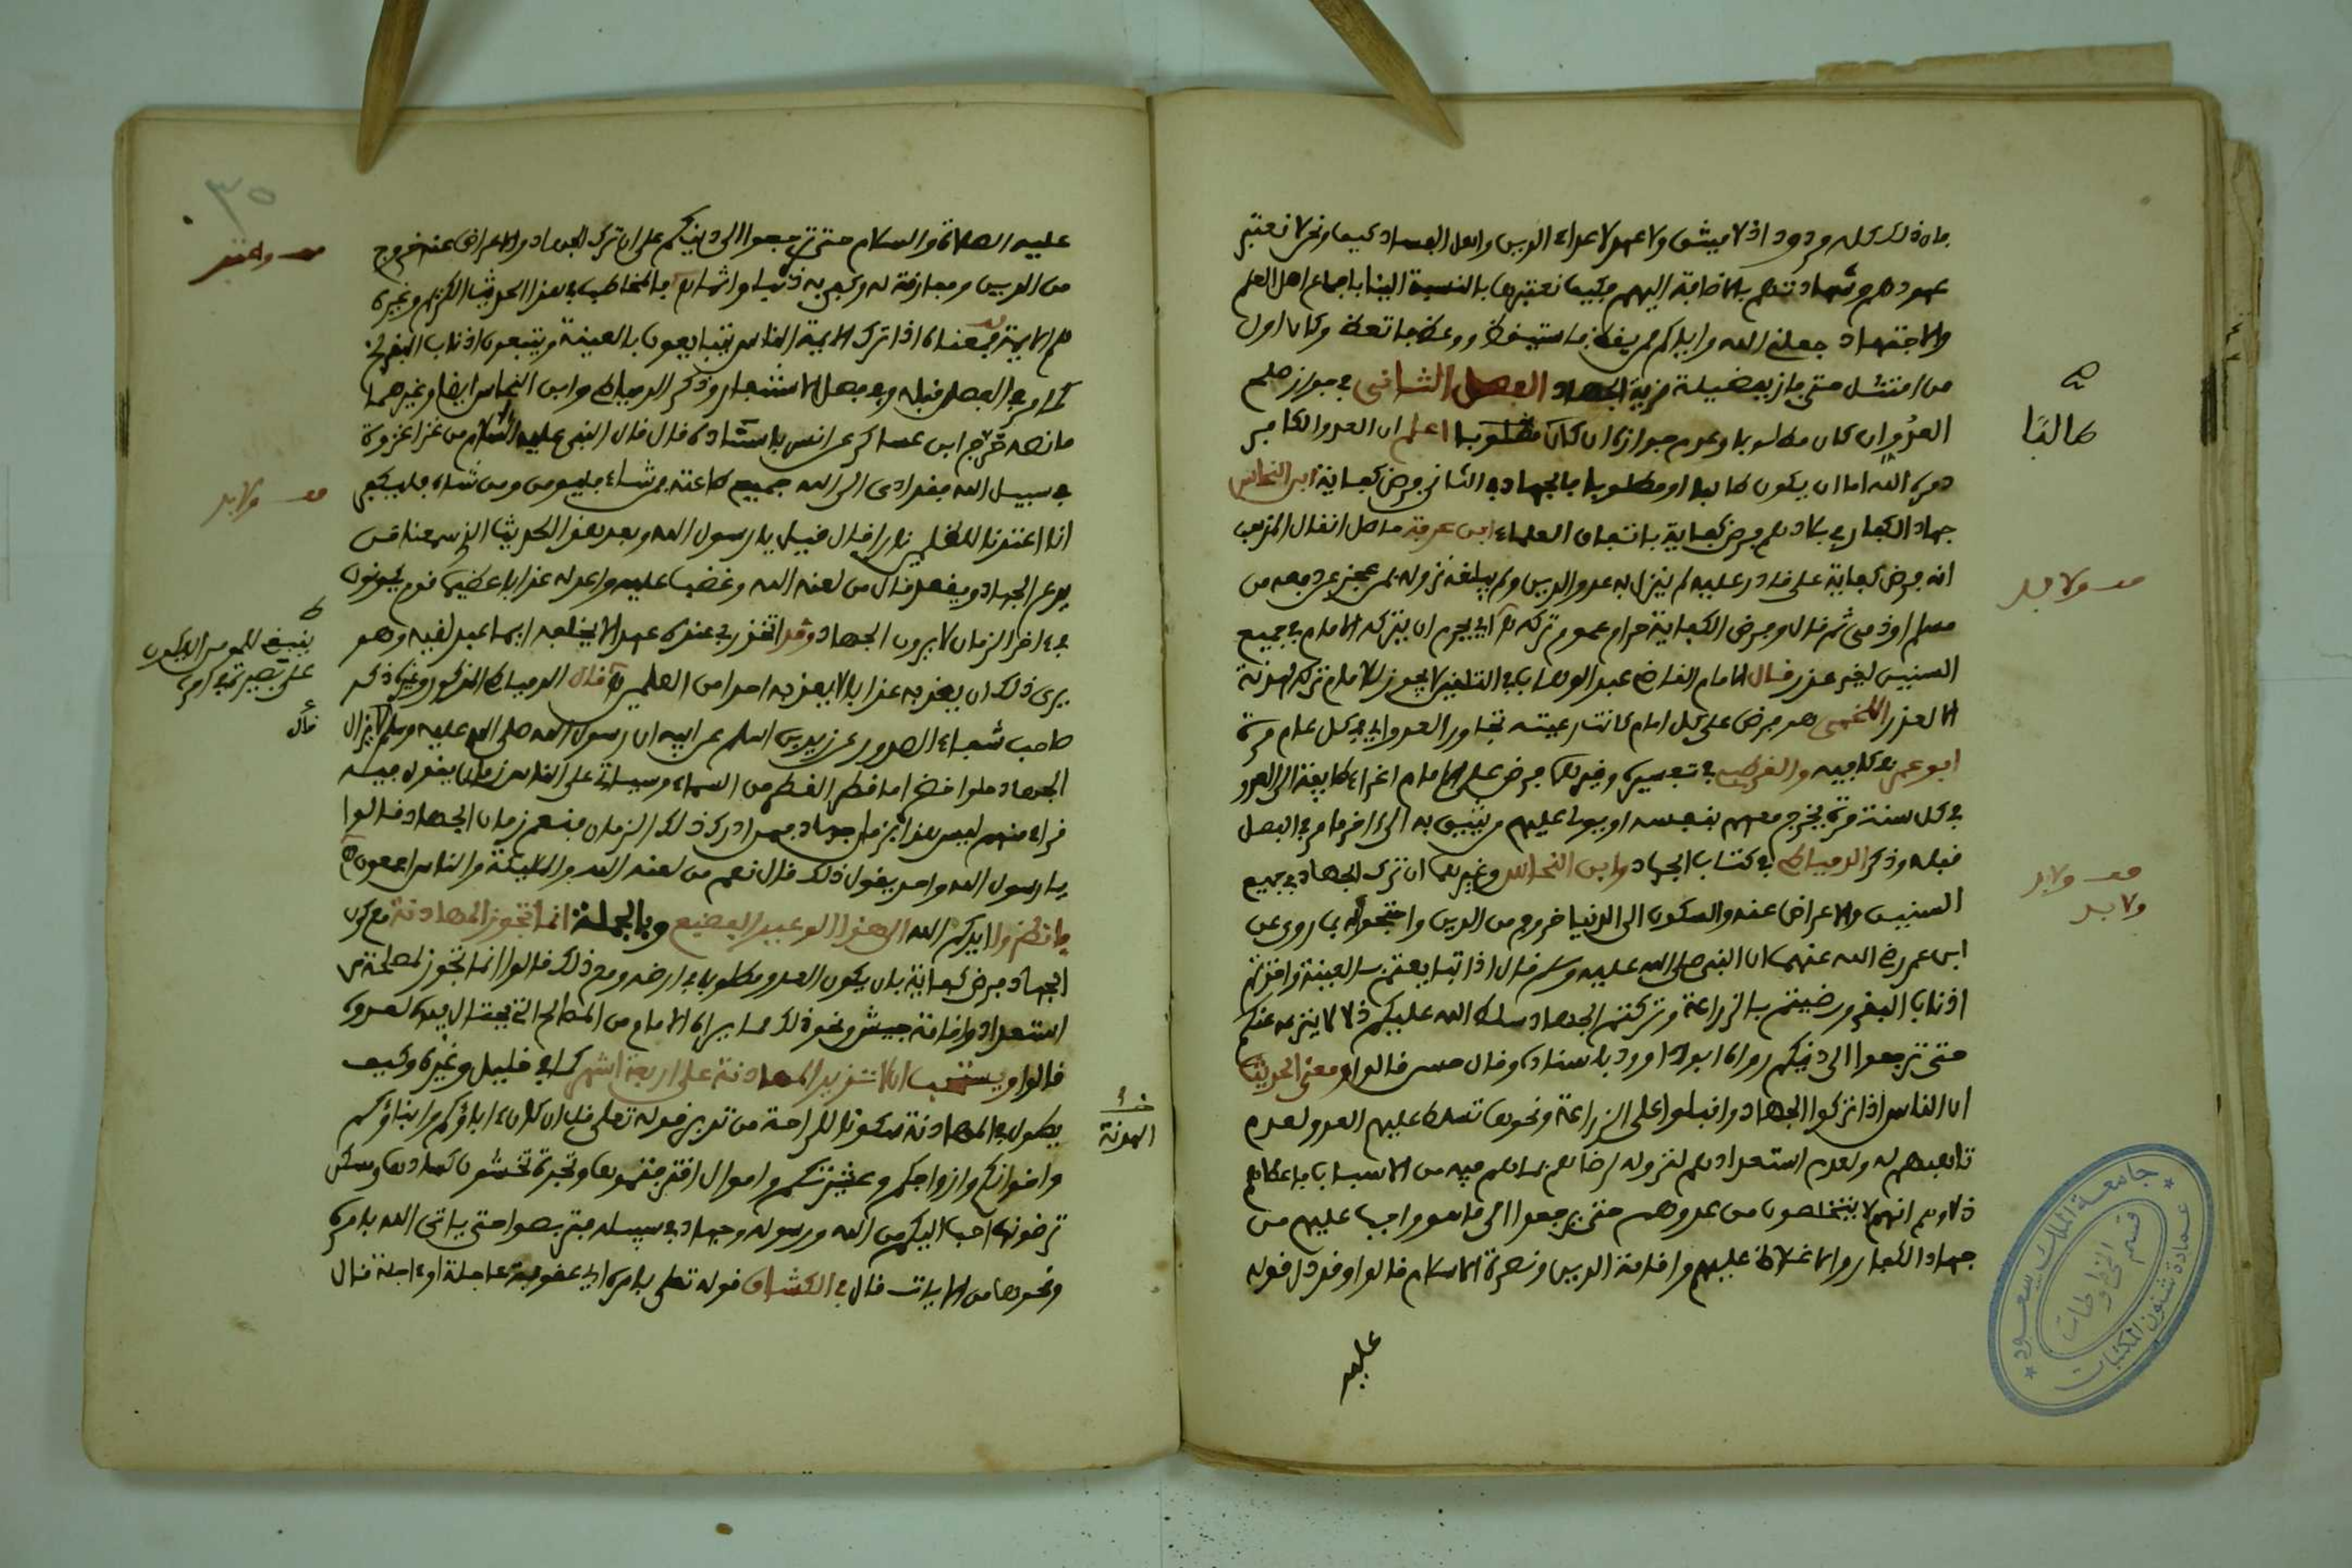 بان ذلك كله مردود اذ لا ميثاق ولا عهد لاعداء الدين واهل الفساد كيف ونحن لا نعتبر
عهودهم وشهادتهم بالاضافة اليهم فكيف نعتبرها بالنسبة الينا باجماع اهل العلم
والاجتهاد جعلنا الله واياكم ممن يقظ فاستيقظ ووعظ فاتعظ وكان اول
من امتثل حتى فاز بفضيلة مزية الجهاد الفصل الثاني في جواز صلح
العدو ان كان مطلوبا وعدم جوازه ان كان مطلوبا اعلم ان العدو الكافر
طالبًا
دمره الله اما ان يكون طالبا او مطلوبا فالجهاد في الثاني فرض كفاية ابن النحاس
جهاد الكفار في بلادهم فرض كفاية باتفاق العلماء ابن عرفة حاصل انقال المذهب
انه فرض كفاية على قادر عليه لم ينزل به عدو الدين ولم يبلغه نزوله بمن عجز عن دفعه من
مسلم او ذمي ثم قال وفرض الكفاية حرام عموم تركه اي يحرم ان يتركه الامام في جميع
السنين لغير عذر قال الامام القاضي عبد الوهاب في التلقين لا يجوز للامام تركه لهدنة
الا لعذر اللخمي هو فرض على كل امام كانت رعيته تجاور العدو اي في كل عام مرة
ابو عمر في كافيه والقرطبي في تفسيره وغيرهما فرض على الامام اغزاء طايفة الى العدو
في كل سنة مرة يخرج معهم بنفسه او يولي عليهم من يثق به الى اخر ما مر في الفصل
قبله وذكر الدمياطي في كتاب الجهاد وابن النحاس وغيرهما ان ترك الجهاد في جميع
السنين والاعراض عنه والسكون الى الدنيا خروج من الدين واحتجوا له بما روي عن
ابن عمر رضي الله عنهما ان النبي صلى الله عليه وسلم قال اذا تبايعتم بالعينة واخذتم
اذناب البقر ورضيتم بالزراعة وتركتم الجهاد سلط الله عليكم ذلا لا ينزعه عنكم
حتى ترجعوا الى دينكم رواه ابو داوود باسناده وقال حسن قالوا ومعنى الحديث
ان الناس اذا تركوا الجهاد واقبلوا على الزراعة ونحوها تسلط عليهم العدو لعدم
تاهبهم له ولعدم استعدادهم لنزوله لرضاهم بما هم فيه من الاسباب فاعطاهم
ذلا وهم انهم لا يتخلصون من عدوهم حتى يرجعوا الى ما هو واجب عليهم من
جهاد الكفار والاغلاظ عليهم واقامة الدين ونصرة الاسلام قالوا وقد دل قوله
عليه
جامعة الملك سعود
عمادة شئون المكتبات
قسم المخطوطات
عليه الصلاة والسلام حتى ترجعوا الى دينكم على ان ترك الجهاد والاعراض عنه خروج
من الدين ومفارقة له وكفى به ذنبا واثما والمخاطب في هذا الحديث الكريم وغيره
هم الايمة فمعناه اذا ترك الايمة الناس يتبايعون بالعينة ويتبعون اذناب البقر الخ
كما مر في الفصل قبله وفي فصل الاستنفار وذكر الدمياطي وابن النحاس ايضا وغيرهما
ما نصه خرج ابن عساكر عن انس باسناده قال قال النبي عليه السلام من غزا غزوة
في سبيل الله فقد ادى الى الله جميع طاعته فمن شاء فليومن ومن شاء فليكفر
انا اعتدنا للظلمين نارا قال قيل يا رسول الله وبعد هذا الحديث الذي سمعنا من
يدع الجهاد ويقعد قال من لعنه الله وغضب عليه واعد له عذابا عظيما قوم يكونون
في ءاخر الزمان لا يرون الجهاد وقد اتخذ ربي عنده عهدا لا يخلفه ايما عبد لقيه وهو
يرى ذلك ان يعذبه عذابا لا يعذبه احدا من العلمين قال الدمياطي المذكور وغيره ذكر
صاحب شفاء الصدور عن زيد بن اسلم عن ابيه ان رسول الله صلى الله عليه وسلم قال لا يزال
الجهاد حلوا خضرا ما قطر القطر من السماء وسياتي على الناس زمان يقول فيه
قراء منهم ليس هذا بزمان جهاد فمن ادرك ذلك الزمان فنعم زمان الجهاد قالوا
يا رسول الله واحد يقول ذلك قال نعم من لعنه الله والمليكة والناس اجمعون
فانظروا ايدكم الله الى هذا الوعيد الفضيع وبالجملة انما تجوز المهادنة مع كون
الجهاد فرض كفاية بان يكون العدو مطلوبا في ارضه ومع ذلك قالوا انما تجوز لمصلحة من
استعداد واقامة جيش ونحو ذلك مما يراه الامام من المصالح التي يحتال بها لعدوه
قالوا ويستحب ان لا تزيد المهادنة على اربعة اشهر كما في خليل وغيره وكيف
يطول في المهادنة سكونا للراحة من تدبر قوله تعلى قل ان كان ءاباؤكم وابناؤكم
واخوانكم وازواجكم وعشيرتكم واموال اقترفتموها وتجرة تخشون كسادها ومسكن
ترضونها احب اليكم من الله ورسوله وجهاد في سبيله فتربصوا حتى ياتي الله بامره
ونحوها من الايات قال في الكشاف قوله تعلى بامره اي عقوبة عاجلة او ءاجلة قال
الهدنة
٣٥